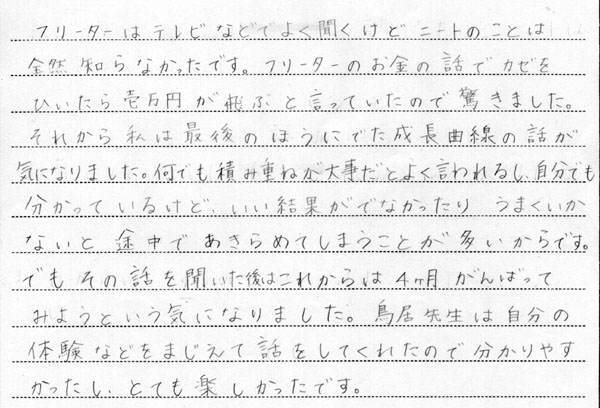 フリーターはテレビなどでよく聞くけどニートのことは
全然知らなかったです。フリーターのお金の話でカゼを
ひいたら壱万円が飛ぶと言っていたので驚きました。
それから私は最後のほうにでた成長曲線の話が
気になりました。何でも積み重ねが大事だとよく言われるし、自分でも
分かっているけど、いい結果がでなかったり うまくいか
ないと途中であきらめてしまうことが多いからです。
でもその話を聞いた後はこれからは4ヶ月がんばって
みようという気になりました。鳥居先生は自分の
体験などをまじえて話をしてくれたので分かりやす
かったし、とても楽しかったです。